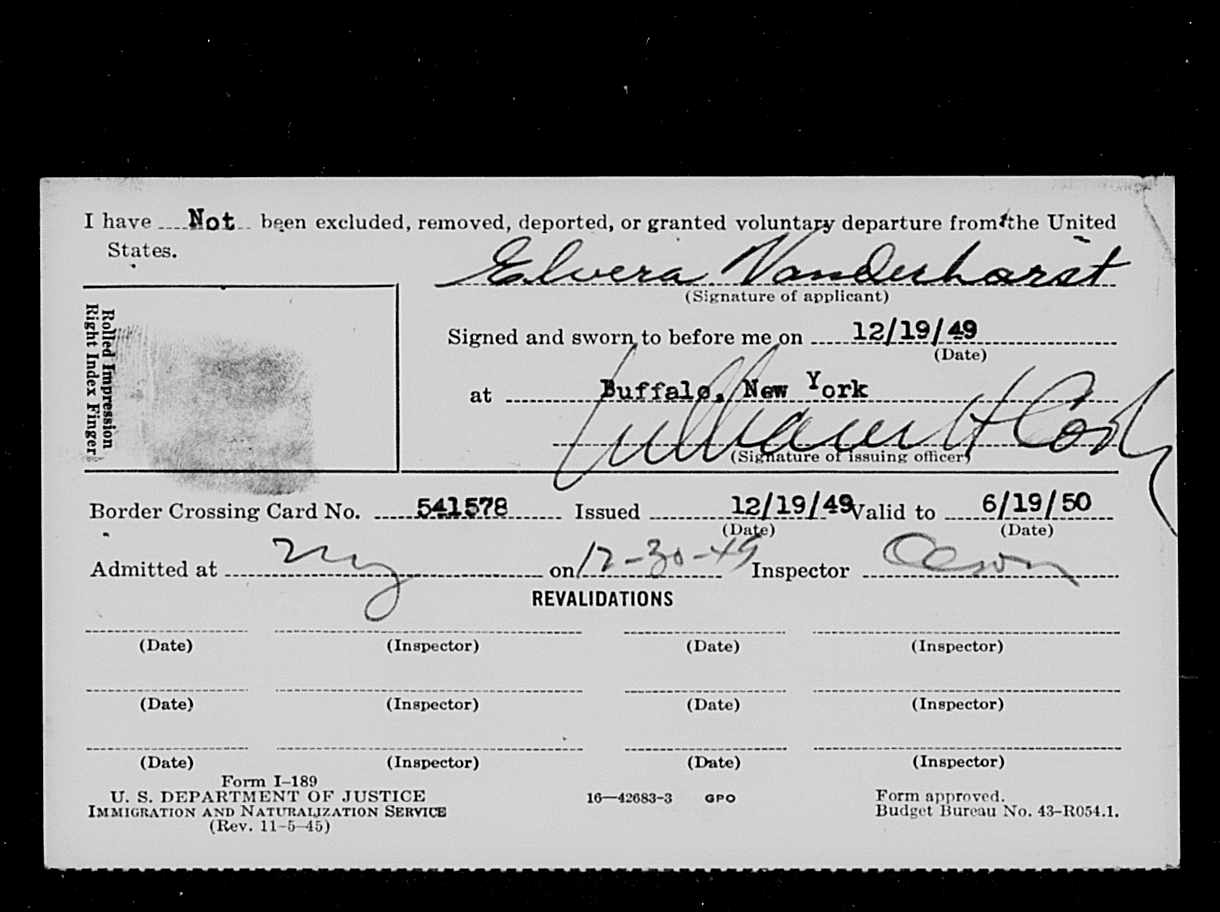 I have Not been excluded, removed, deported, or granted voluntary departure from the United
States.
Elvera Vanderhorst
(Signature of applicant)
Rolled Impression
Right Index Finger
Signed and sworn to before me on 12/19/49
(Date)
at Buffalo, New York
William H Cody
(Signature of issuing officer)
Border Crossing Card No. 541578 Issued 12/19/49 Valid to 6/19/50
(Date) (Date)
Admitted at on 12-30-49 Inspector
REVALIDATIONS
(Date) (Inspector) (Date) (Inspector)
(Date) (Inspector) (Date) (Inspector)
(Date) (Inspector) (Date) (Inspector)
Form I-189
U. S. DEPARTMENT OF JUSTICE 16—42683-3 GPO Form approved.
IMMIGRATION AND NATURALIZATION SERVICE Budget Bureau No. 43-R054.1.
(Rev. 11-5-45)